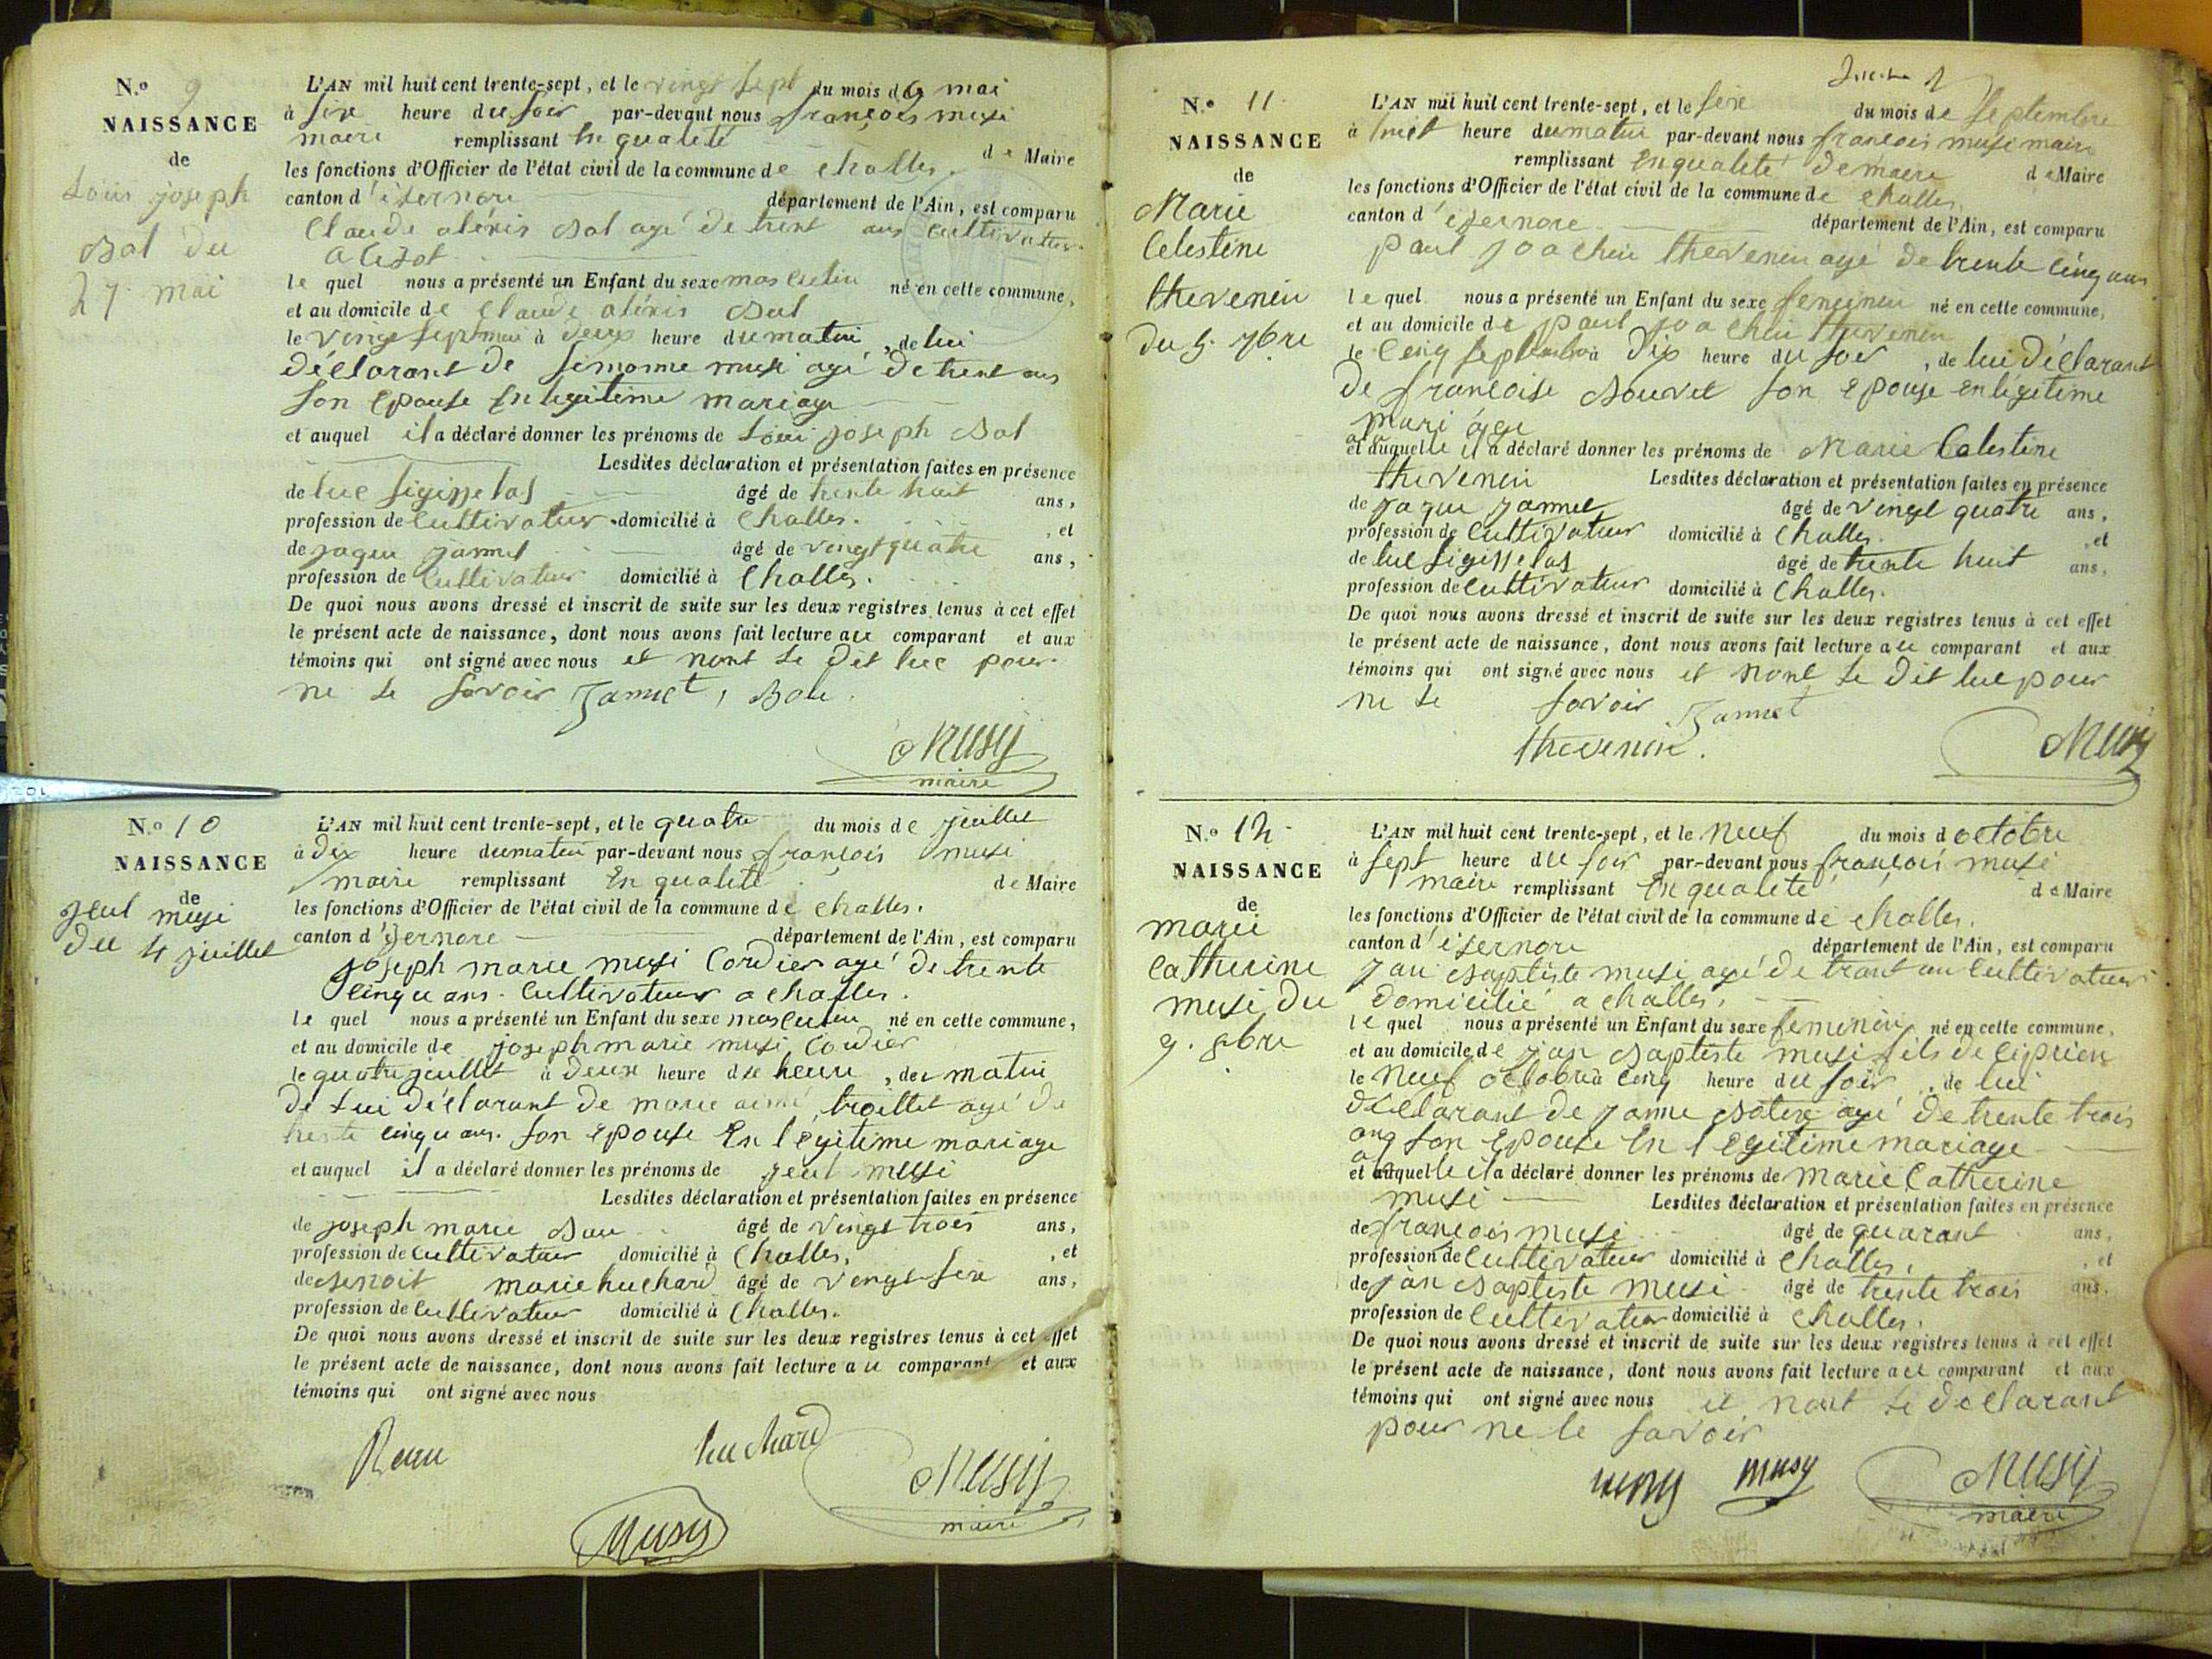 N.o 9
NAISSANCE
de
Louis joseph
Bal du
27 mai
L'AN mil huit cent trente-sept, et le vingt sept du mois de mai
à sixe heure du soir par-devant nous françois musi
maire remplissant En qualité de Maire
les fonctions d'Officier de l'état civil de la commune de challes.
canton d'isernore département de l'Ain, est comparu
Claude aléxis Bal agé de trent ans Cultivateur
a
le quel nous a présenté un Enfant du sexe masculin né en cette commune,
et au domicile de Claude aléxis Bal
le vingt sept mai à deux heure du matin, de lui
déclarant de simonne musi agé de trent ans
son Epouse En légitime mariage
et auquel il a déclaré donner les prénoms de Loui joseph Bal
Lesdites déclaration et présentation faites en présence
de luc sigisselas âgé de trente huit ans,
profession de Cultivateur domicilié à Challes. , et
de jaque jannet âgé de vingt quatre ans,
profession de Cultivateur domicilié à Challes.
De quoi nous avons dressé et inscrit de suite sur les deux registres tenus à cet effet
le présent acte de naissance, dont nous avons fait lecture au comparant et aux
témoins qui ont signé avec nous et nont le dit luc pour
ne le savoir Jannet, Bale.
Musy
maire
N.o 10
NAISSANCE
de
jeul musi
du 4 juillet
L'AN mil huit cent trente-sept, et le quatre du mois de juillet
à dix heure du matin par-devant nous françois musi
maire remplissant En qualité de Maire
les fonctions d'Officier de l'état civil de la commune de challes.
canton d'isernore département de l'Ain, est comparu
joseph marie musi Cordier agé de trente
cinqu ans. Cultivateur a challes.
le quel nous a présenté un Enfant du sexe masculin né en cette commune,
et au domicile de joseph marie musi Cordier
le quatre juillet à deux heure du heure, de matin
de Lui déclarant de marie aimé troillet agé de
trente cinqu ans. son Epouse En légitime mariage
et auquel il a déclaré donner les prénoms de jeul musi
Lesdites déclaration et présentation faites en présence
de joseph marie Bau âgé de vingt trois ans,
profession de Cultivateur domicilié à Challes, , et
de Benoit marie huchard âgé de vingt sixe ans,
profession de Cultivateur domicilié à Challes.
De quoi nous avons dressé et inscrit de suite sur les deux registres tenus à cet effet
le présent acte de naissance, dont nous avons fait lecture au comparant et aux
témoins qui ont signé avec nous
huchard
Musy
maire
Musy
N.o 11
NAISSANCE
de
Marie
Celestine
thevenin
du 5. 7bre
L'AN mil huit cent trente-sept, et le sixe du mois de septembre
à huit heure du matin par-devant nous françois musi maire
remplissant En qualité de maire de Maire
les fonctions d'Officier de l'état civil de la commune de challes.
canton d'isernore département de l'Ain, est comparu
paul joachin thevenin agé de trente cinq ans
le quel nous a présenté un Enfant du sexe feminin né en cette commune,
et au domicile de paul joachin thevenin
le cinq septembre à dix heure du soir, de lui déclarant
de françoise Bouvet son Epouse en légitime
mariage
et auquelle il a déclaré donner les prénoms de Marie Celestine
thevenin Lesdites déclaration et présentation faites en présence
de jaque jannet âgé de vingt quatre ans,
profession de Cultivateur domicilié à Challes. , et
de luc sigisselas âgé de trente huit ans,
profession de Cultivateur domicilié à Challes.
De quoi nous avons dressé et inscrit de suite sur les deux registres tenus à cet effet
le présent acte de naissance, dont nous avons fait lecture au comparant et aux
témoins qui ont signé avec nous et nont le dit luc pour
ne le savoir Jannet
thevenin. Musy
N.o 12
NAISSANCE
de
marie
Catherine
musi du
9. 8bre
L'AN mil huit cent trente-sept, et le Neuf du mois d octobre
à sept heure du soir par-devant nous françois musi
maire remplissant En qualité de Maire
les fonctions d'Officier de l'état civil de la commune de challes.
canton d'isernore département de l'Ain, est comparu
jan Baptiste musi agé de trant an Cultivateur
domicilié a challes.
le quel nous a présenté un Enfant du sexe feminin né en cette commune,
et au domicile de jan Baptiste musi fils de Ciprien
le Neuf octobre à cinq heure du soir, de lui
déclarant de janne agé de trente trois
ans son Epouse En légitime mariage
et auquelle il a déclaré donner les prénoms de Marie Catherine
musi Lesdites déclaration et présentation faites en présence
de françois musi âgé de quarant ans,
profession de Cultivateur domicilié à Challes. , et
de jan Baptiste musi âgé de trente trois ans,
profession de Cultivateur domicilié à challes.
De quoi nous avons dressé et inscrit de suite sur les deux registres tenus à cet effet
le présent acte de naissance, dont nous avons fait lecture au comparant et aux
témoins qui ont signé avec nous et nont le déclarant
pour ne le savoir
musy Musy
maire